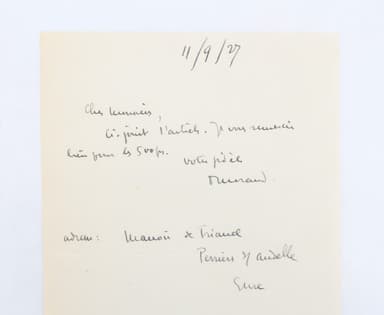 11/9/27
Cher
ci-joint l'article. Je vous remercie
bien pour les 500 frs.
votre fidèle
Morand
adresse: Manoir de Trianel
Perriers s/ andelle
Eure